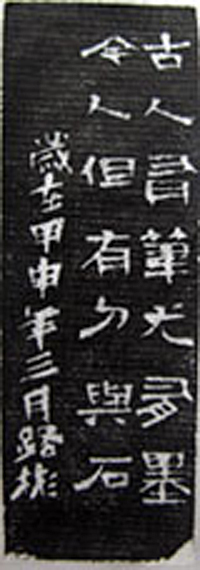 古人有筆尤有墨
今人但有刀與石
歲在甲申年三月路彬